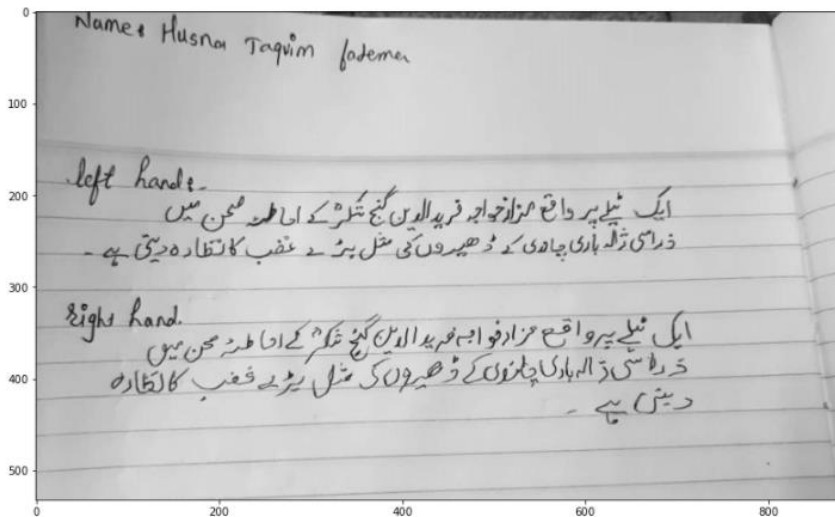 Name: Husna Taqvim fatema
left hand:-
ایک ٹیلے پر واقع مزار خواجہ فرید الدین گنج شکرؒ کے احاطہ صحن میں
ذرا سی ژالہ باری چاندی کے ڈھیروں کی مثل بڑے غضب کا نظارہ دیتی ہے۔
right hand.
ایک ٹیلے پر واقع مزار خواجہ فرید الدین گنج شکرؒ کے احاطہ صحن میں
ذرا سی ژالہ باری چاندی کے ڈھیروں کی مثل بڑے غضب کا نظارہ
دیتی ہے۔
0
100
200
300
400
500
0 200 400 600 800